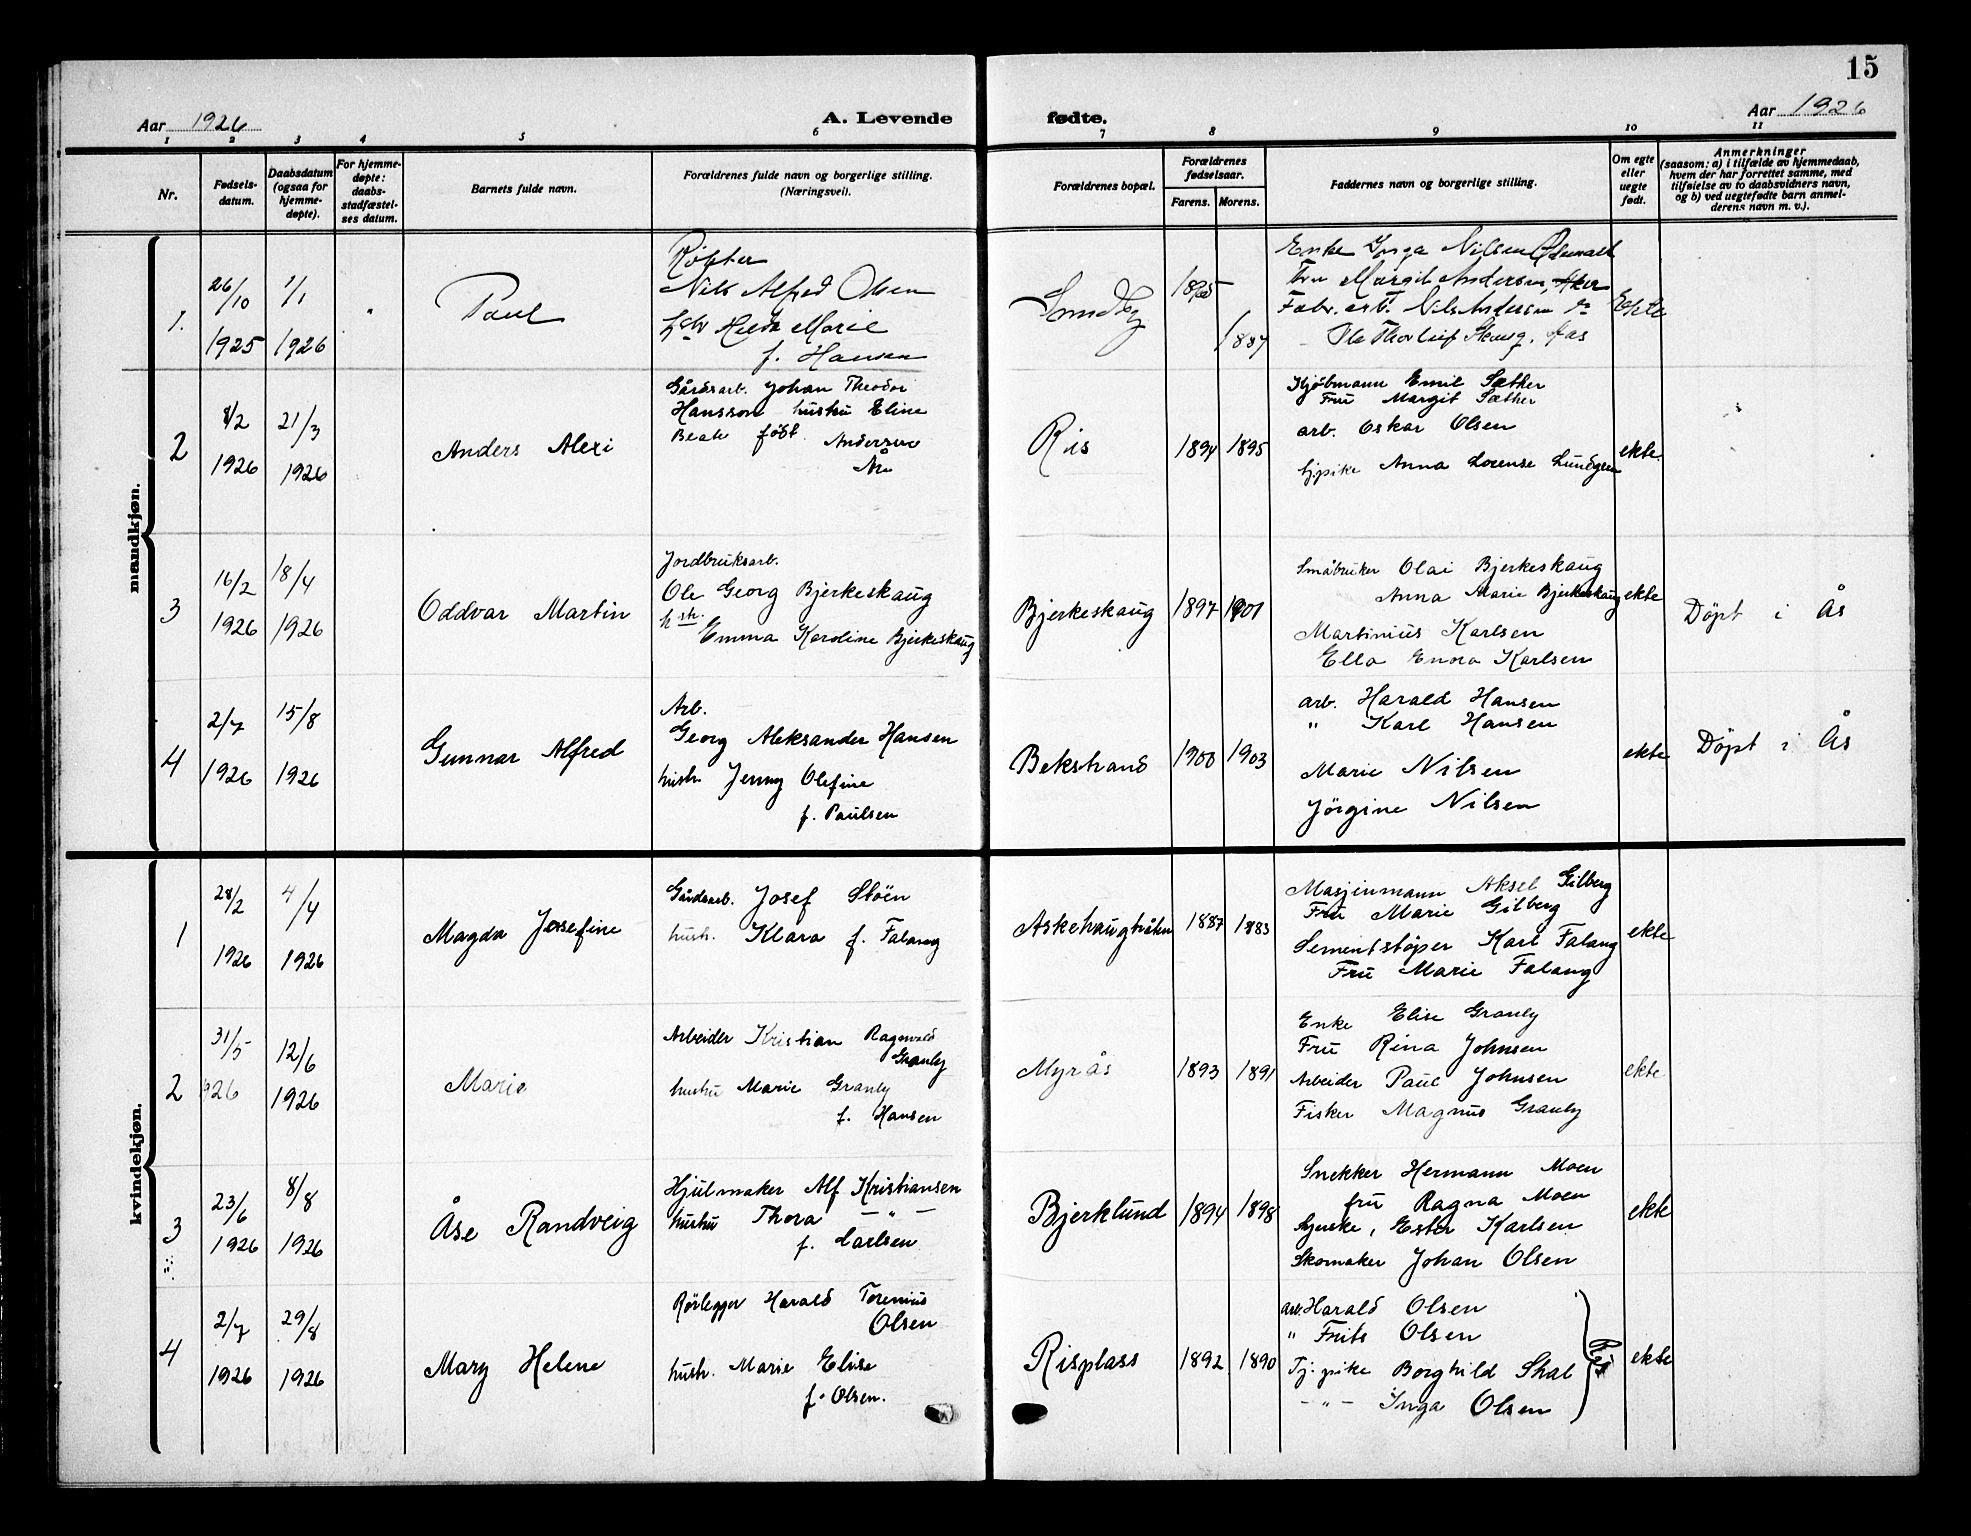 15
Aar 1926
A. Levende
fødte.
Aar 1926
1 2 3 4 5 6 7 8 9 10 11
Nr.
Fødsels-
datum.
Daabsdatum
(ogsaa for
hjemme-
døpte).
For hjemme-
døpte:
daabs-
stadfæstel-
ses datum.
Barnets fulde navn.
Forældrenes fulde navn og borgerlige stilling.
(Næringsvei).
Forældrenes bopæl.
Forældrenes
fødselsaar.
Farens. Morens.
Faddernes navn og borgerlige stilling.
Om egte
eller
uegte
født.
Anmerkninger
(saasom: a) i tilfælde av hjemmedaab,
hvem der har forrettet samme, med
tilføielse av to daabsvidners navn,
og b) ved uegtefødte barn anmel-
derens navn m. v.).
mandkjøn.
1.
26/10
1925
1/1
1926
Paul
Røkter
Nils Alfred Olsen
Marie
f. Hansen
Sundby
1887
Enke Inga Nilsen
Fru Margit Andersen, Aker
Fabr. arb. Nils Andersen
Ole Thorleif Skaug, Aas
Ekte
2
8/2
1926
21/3
1926
Anders Alexi
Gårdsarb. Johan Theodor
Hansson hustru Eline
Beate født Andersen
Ris
1894 1895
Kjøbmann Emil Sæther
Fru Margit Sæther
arb. Oskar Olsen
tj.pike Anna Lorense Lundgren
ekte.
3
16/2
1926
18/4
1926
Oddvar Martin
Jordbruksarb.
Ole Georg Bjerkeskaug
hstr.
Emma Karoline Bjerkeskaug
Bjerkeskaug
1897 1901
Småbruker Olai Bjerkeskaug
Anna Marie Bjerkeskaug
Martinius Karlsen
Ella Enora Karlsen
ekte
Döpt i Ås
4
2/7
1926
15/8
1926
Gunnar Alfred
Arb.
Georg Aleksander Hansen
hustr. Jenny Olefine
f. Paulsen
Bekstrand
1900 1903
arb. Harald Hansen
" Karl Hansen
Marie Nilsen
Jörgine Nilsen
ekte
Döpt i Ås
kvindekjøn.
1
28/2
1926
4/4
1926
Magda Josefine
Gårdsarb. Josef Stöen
hustr. Klara f. Falang
Askehaugtråkn
1887 1883
Masjinmann Aksel Gilberg
Fru Marie Gilberg
Sementstöper Karl Falang
Fru Marie Falang
ekte
2
31/5
926
12/6
1926
Marie
Arbeider Kristian Ragnvald
Granly
hustru Marie Granly
f. Hansen
Myrås
1893 1891
Enke Elise Granly
Fru Rina Johnsen
Arbeider Paul Johnsen
Fisker Magnus Granly
ekte
3
23/6
1926
8/8
1926
Åse Randveig
Hjulmaker Alf Kristiansen
hustru Thora — " —
f. Carlsen
Bjerklund
1894 1898
Snekker Hermann Moen
fru Ragna Moen
Ester Karlsen
Skomaker Johan Olsen
ekte
4
2/7
1926
29/8
1926
Mary Helene
Rörlegger Harald Torenius
Olsen
hustr. Marie Elise
f. Olsen.
Risplass
1892 1890
arb. Harald Olsen
" Frits Olsen
Tj. pike Borghild Skal
— " — Inga Olsen
Ris
ekte